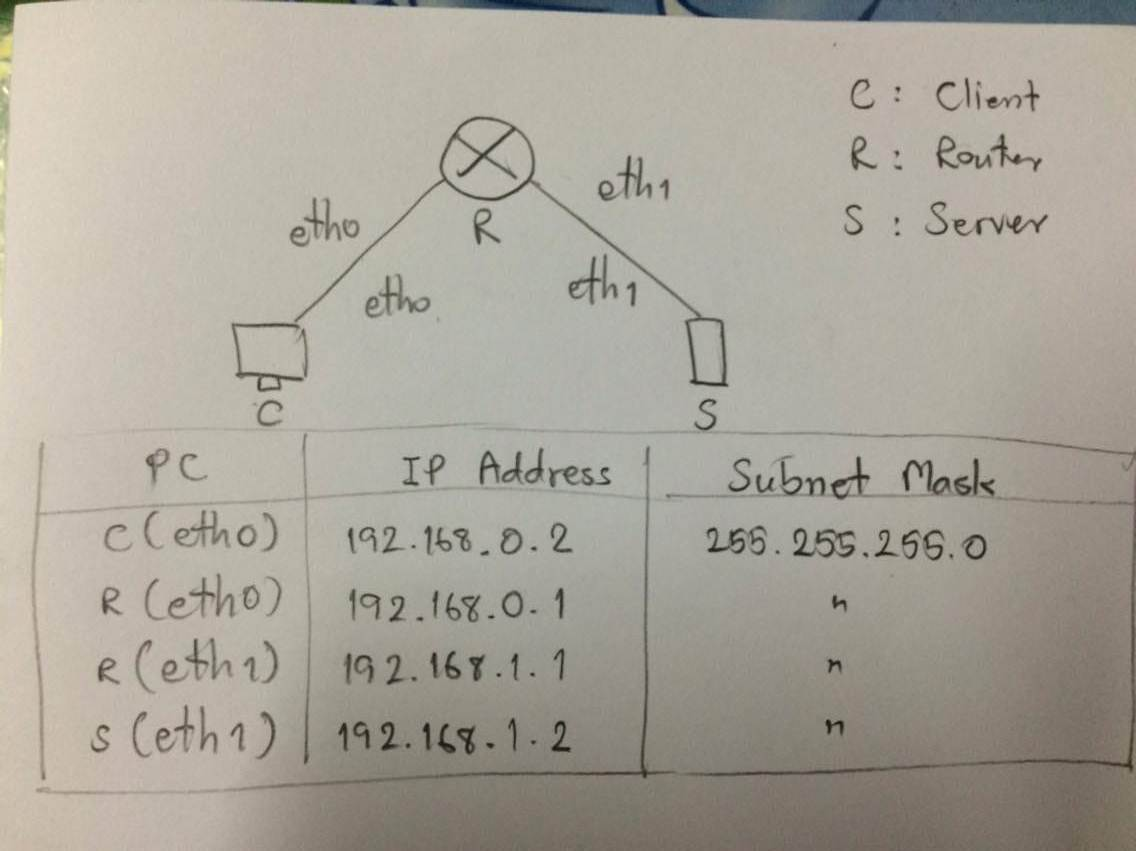 C : Client
R : Router
S : Server
eth1
eth0
R
eth0
eth1
C
S
PC IP Address Subnet Mask
C (eth0) 192.168.0.2 255.255.255.0
R (eth0) 192.168.0.1 "
R (eth1) 192.168.1.1 "
S (eth1) 192.168.1.2 "